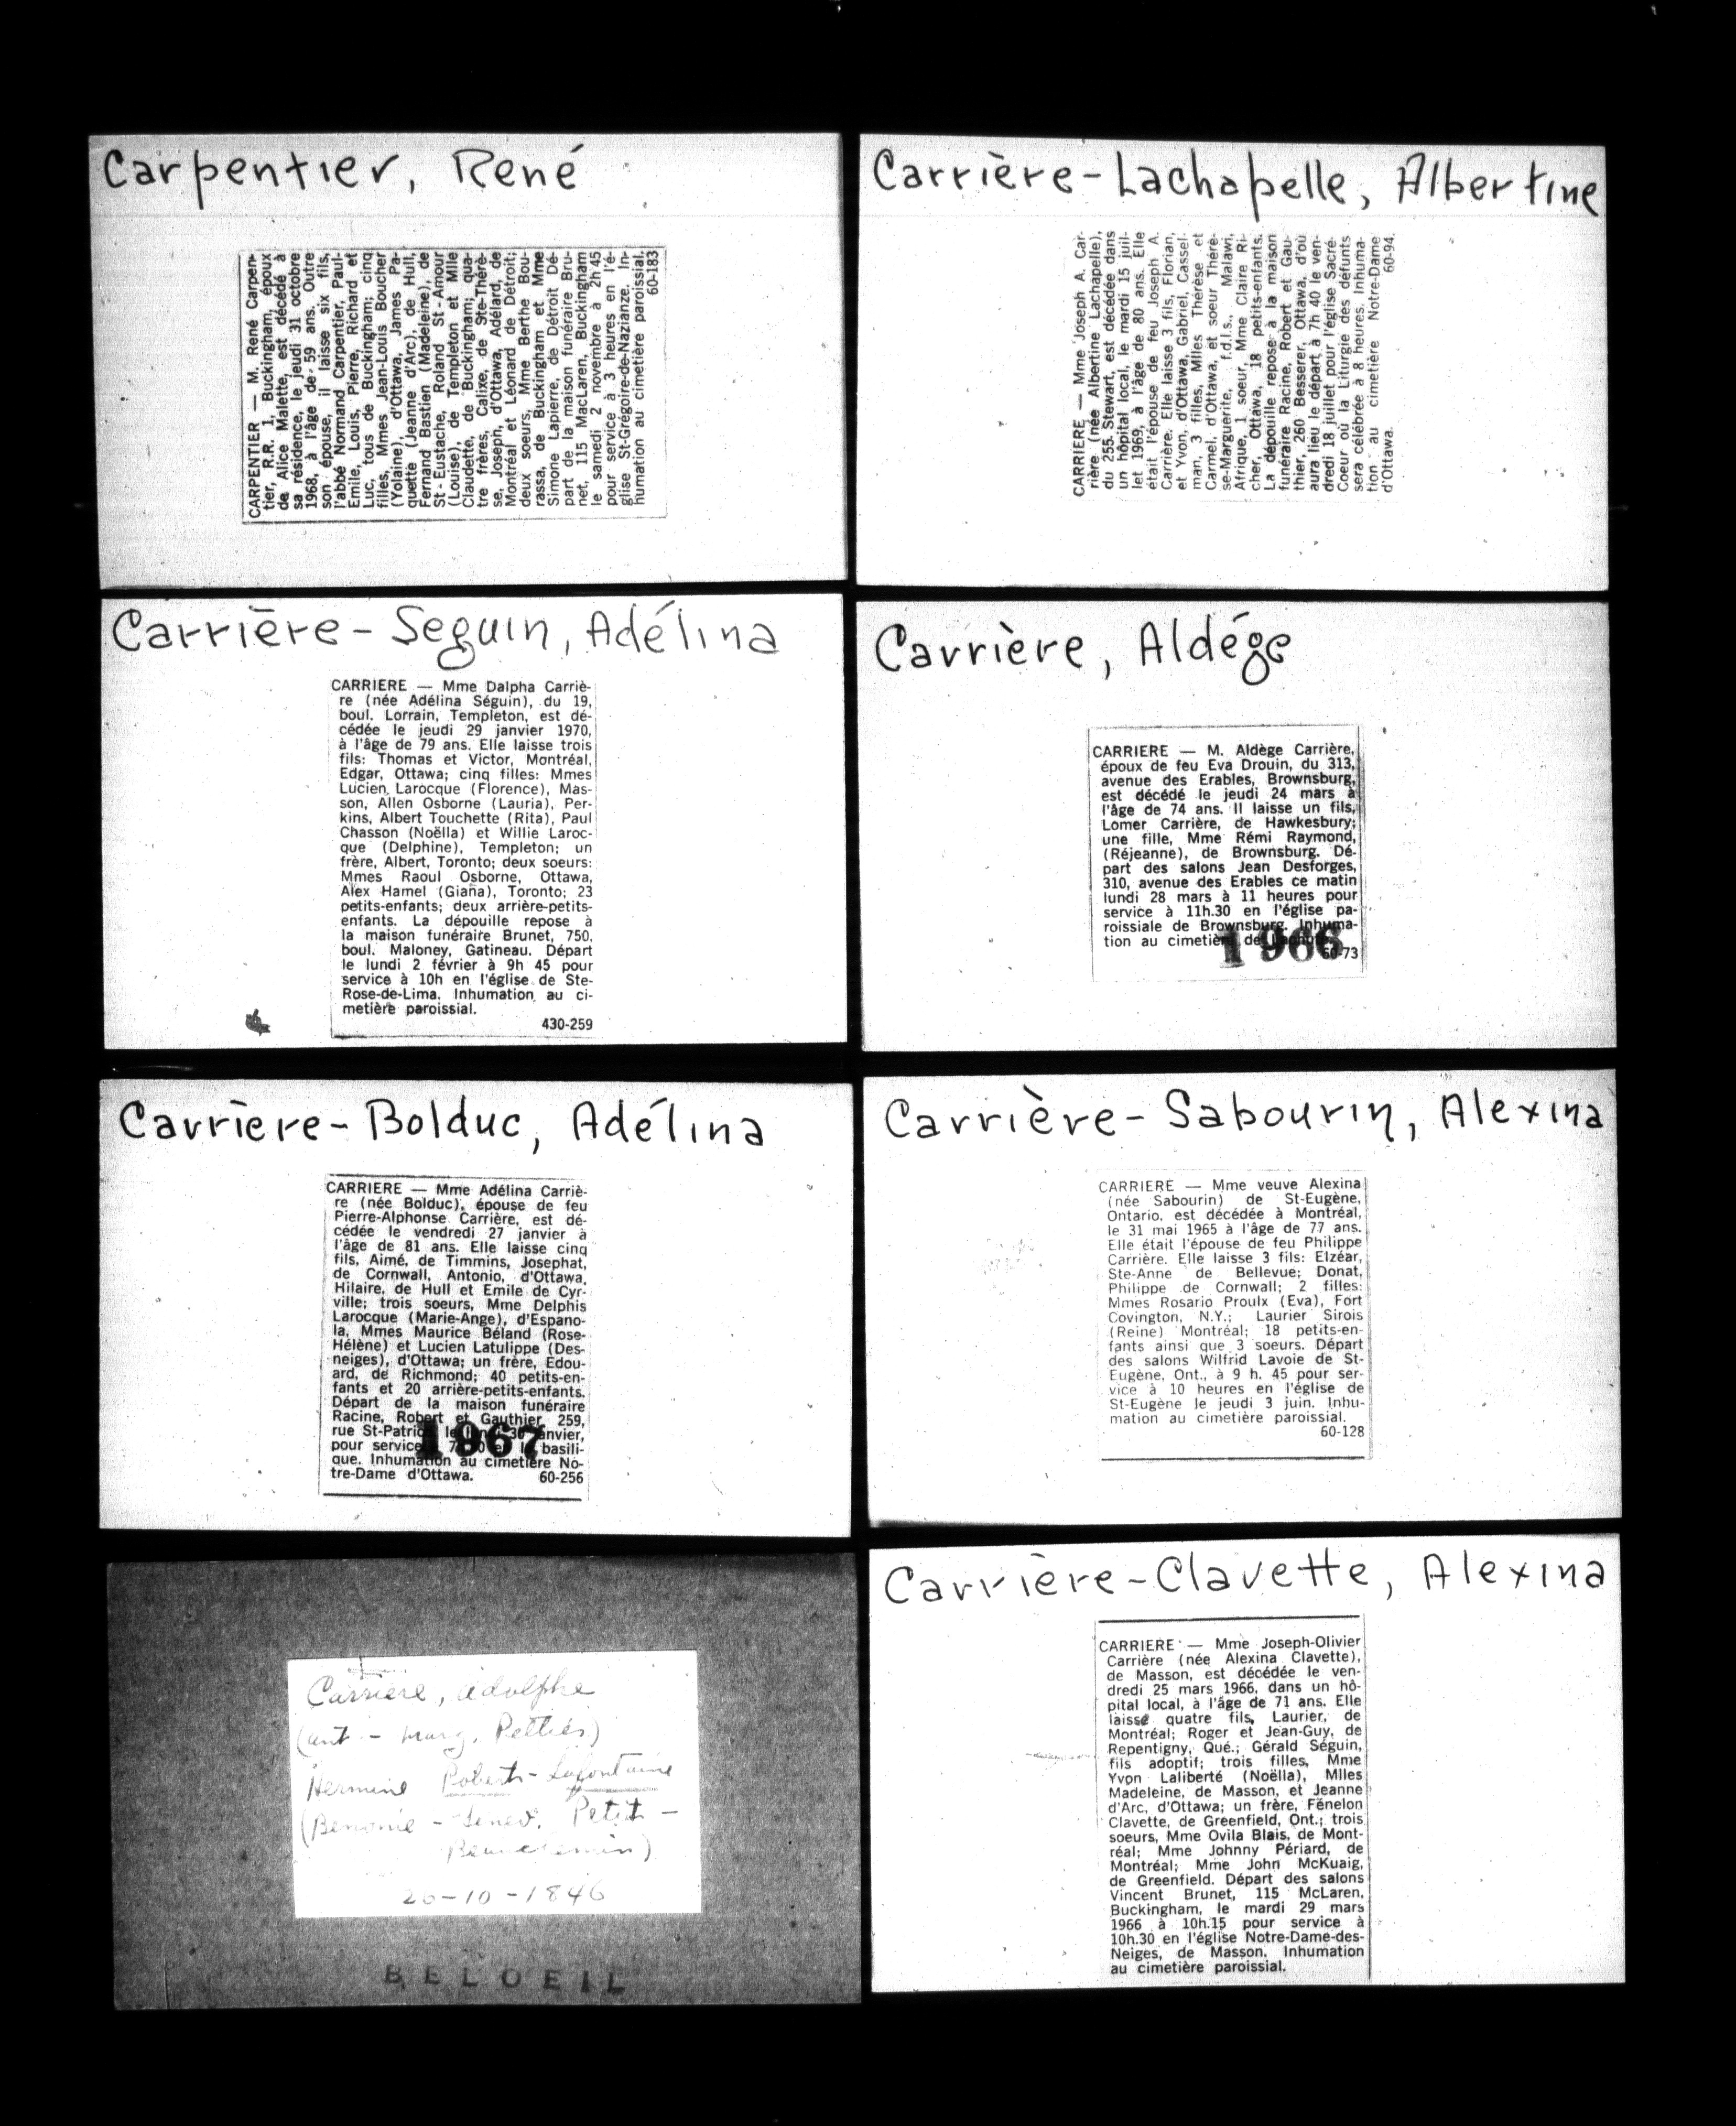 Carpentier, René
CARPENTIER — M. René Carpen-
tier, R.R. 1, Buckingham, époux
de Alice Malette, est décédé à
sa résidence, le jeudi 31 octobre
1968, à l'âge de 59 ans. Outre
son épouse, il laisse six fils,
l'abbé Normand Carpentier, Paul-
Emile, Louis, Pierre, Richard et
Luc, tous de Buckingham; cinq
filles, Mmes Jean-Louis Boucher
(Yolaine), d'Ottawa, James Pa-
quette (Jeanne d'Arc), de Hull,
Fernand Bastien (Madeleine), de
St-Eustache, Roland St-Amour
(Louise), de Templeton et Mlle
Claudette, de Buckingham; qua-
tre frères, Calixe, de Ste-Thérè-
se, Joseph, d'Ottawa, Adélard, de
Montréal et Léonard de Détroit;
deux soeurs, Mme Berthe Bou-
rassa, de Buckingham et Mme
Simone Lapierre, de Détroit Dé-
part de la maison funéraire Bru-
net, 115 MacLaren, Buckingham
le samedi 2 novembre à 2h 45
pour service à 3 heures en l'é-
glise St-Grégoire-de-Nazianze. In-
humation au cimetière paroissial.
60-183
Carrière-Lachapelle, Albertine
CARRIERE — Mme Joseph A. Car-
rière (née Albertine Lachapelle),
du 255 Stewart, est décédée dans
un hôpital local, le mardi 15 juil-
let 1969, à l'âge de 80 ans. Elle
était l'épouse de feu Joseph A.
Carrière. Elle laisse 3 fils, Florian,
et Yvon, d'Ottawa, Gabriel, Cassel-
man, 3 filles, Mlles Thérèse et
Carmel, d'Ottawa, et soeur Thérè-
se-Marguerite, f.d.l.s., Malawi,
Afrique, 1 soeur, Mme Claire Ri-
cher, Ottawa, 18 petits-enfants.
La dépouille repose à la maison
funéraire Racine, Robert et Gau-
thier, 260 Besserer, Ottawa, d'où
aura lieu le départ à 7h 40 le ven-
dredi 18 juillet pour l'église Sacré-
Coeur où la Liturgie des défunts
sera célébrée à 8 heures. Inhuma-
tion au cimetière Notre-Dame
d'Ottawa. 60-94
Carrière-Seguin, Adélina
CARRIERE — Mme Dalpha Carriè-
re (née Adélina Séguin), du 19,
boul. Lorrain, Templeton, est dé-
cédée le jeudi 29 janvier 1970,
à l'âge de 79 ans. Elle laisse trois
fils: Thomas et Victor, Montréal,
Edgar, Ottawa; cinq filles: Mmes
Lucien Larocque (Florence), Mas-
son, Allen Osborne (Lauria), Per-
kins, Albert Touchette (Rita), Paul
Chasson (Noëlla) et Willie Laroc-
que (Delphine), Templeton; un
frère, Albert, Toronto; deux soeurs:
Mmes Raoul Osborne, Ottawa,
Alex Hamel (Giana), Toronto; 23
petits-enfants; deux arrière-petits-
enfants. La dépouille repose à
la maison funéraire Brunet, 750,
boul. Maloney, Gatineau. Départ
le lundi 2 février à 9h 45 pour
service à 10h en l'église de Ste-
Rose-de-Lima. Inhumation au ci-
metière paroissial.
430-259
Carrière, Aldége
CARRIERE — M. Aldège Carrière,
époux de feu Eva Drouin, du 313,
avenue des Erables, Brownsburg,
est décédé le jeudi 24 mars à
l'âge de 74 ans. Il laisse un fils,
Lomer Carrière, de Hawkesbury;
une fille, Mme Rémi Raymond,
(Réjeanne), de Brownsburg. Dé-
part des salons Jean Desforges,
310, avenue des Erables ce matin
lundi 28 mars à 11 heures pour
service à 11h.30 en l'église pa-
roissiale de Brownsburg. Inhuma-
tion au cimetière de
1966
60-73
Carrière-Bolduc, Adélina
CARRIERE — Mme Adélina Carriè-
re (née Bolduc), épouse de feu
Pierre-Alphonse Carrière, est dé-
cédée le vendredi 27 janvier à
l'âge de 81 ans. Elle laisse cinq
fils, Aimé, de Timmins, Josephat,
de Cornwall, Antonio, d'Ottawa,
Hilaire, de Hull et Emile de Cyr-
ville; trois soeurs, Mme Delphis
Larocque (Marie-Ange), d'Espano-
la, Mmes Maurice Béland (Rose-
Hélène) et Lucien Latulippe (Des-
neiges), d'Ottawa; un frère, Edou-
ard, de Richmond; 40 petits-en-
fants et 20 arrière-petits-enfants.
Départ de la maison funéraire
Racine, Robert et Gauthier, 259,
rue St-Patrick, le lundi 30 janvier,
pour service basili-
1967
que. Inhumation au cimetière No-
tre-Dame d'Ottawa. 60-256
Carrière-Sabourin, Alexina
CARRIERE — Mme veuve Alexina
(née Sabourin) de St-Eugène,
Ontario, est décédée à Montréal,
le 31 mai 1965 à l'âge de 77 ans.
Elle était l'épouse de feu Philippe
Carrière. Elle laisse 3 fils: Elzéar,
Ste-Anne de Bellevue; Donat,
Philippe de Cornwall; 2 filles:
Mmes Rosario Proulx (Eva), Fort
Covington, N.Y.; Laurier Sirois
(Reine) Montréal; 18 petits-en-
fants ainsi que 3 soeurs. Départ
des salons Wilfrid Lavoie de St-
Eugène, Ont., à 9 h. 45 pour ser-
vice à 10 heures en l'église de
St-Eugène le jeudi 3 juin. Inhu-
mation au cimetière paroissial.
60-128
Carrière, Adolphe
(ant - marg. Petties)
Hermine Poberts-Lafontaine
(Benomie - Genev. Petit -
Beauchemin)
20-10-1846
BELOEIL
Carrière-Clavette, Alexina
CARRIERE — Mme Joseph-Olivier
Carrière (née Alexina Clavette),
de Masson, est décédée le ven-
dredi 25 mars 1966, dans un hô-
pital local, à l'âge de 71 ans. Elle
laisse quatre fils, Laurier, de
Montréal; Roger et Jean-Guy, de
Repentigny, Qué.; Gérald Séguin,
fils adoptif; trois filles, Mme
Yvon Laliberté (Noëlla), Mlles
Madeleine, de Masson, et Jeanne
d'Arc, d'Ottawa; un frère, Fénelon
Clavette, de Greenfield, Ont.; trois
soeurs, Mme Ovila Blais, de Mont-
réal; Mme Johnny Périard, de
Montréal; Mme John McKuaig,
de Greenfield. Départ des salons
Vincent Brunet, 115 McLaren,
Buckingham, le mardi 29 mars
1966 à 10h.15 pour service à
10h.30 en l'église Notre-Dame-des-
Neiges, de Masson. Inhumation
au cimetière paroissial.